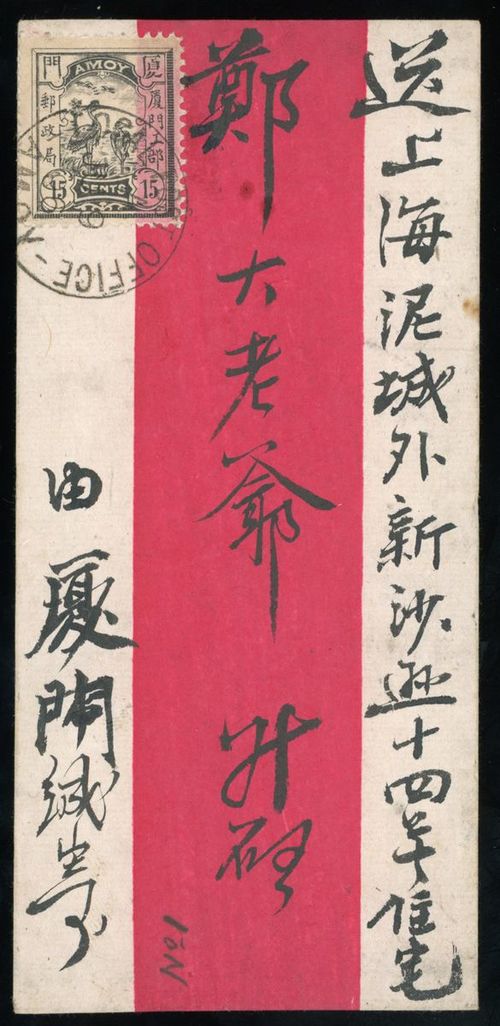 送上海泥城外新沙遜十四号住宅
鄭大老爺 升啟
由厦門緘寄
AMOY
厦門
厦門工部
郵政局
15 CENTS 15
AMOY
OFFICE